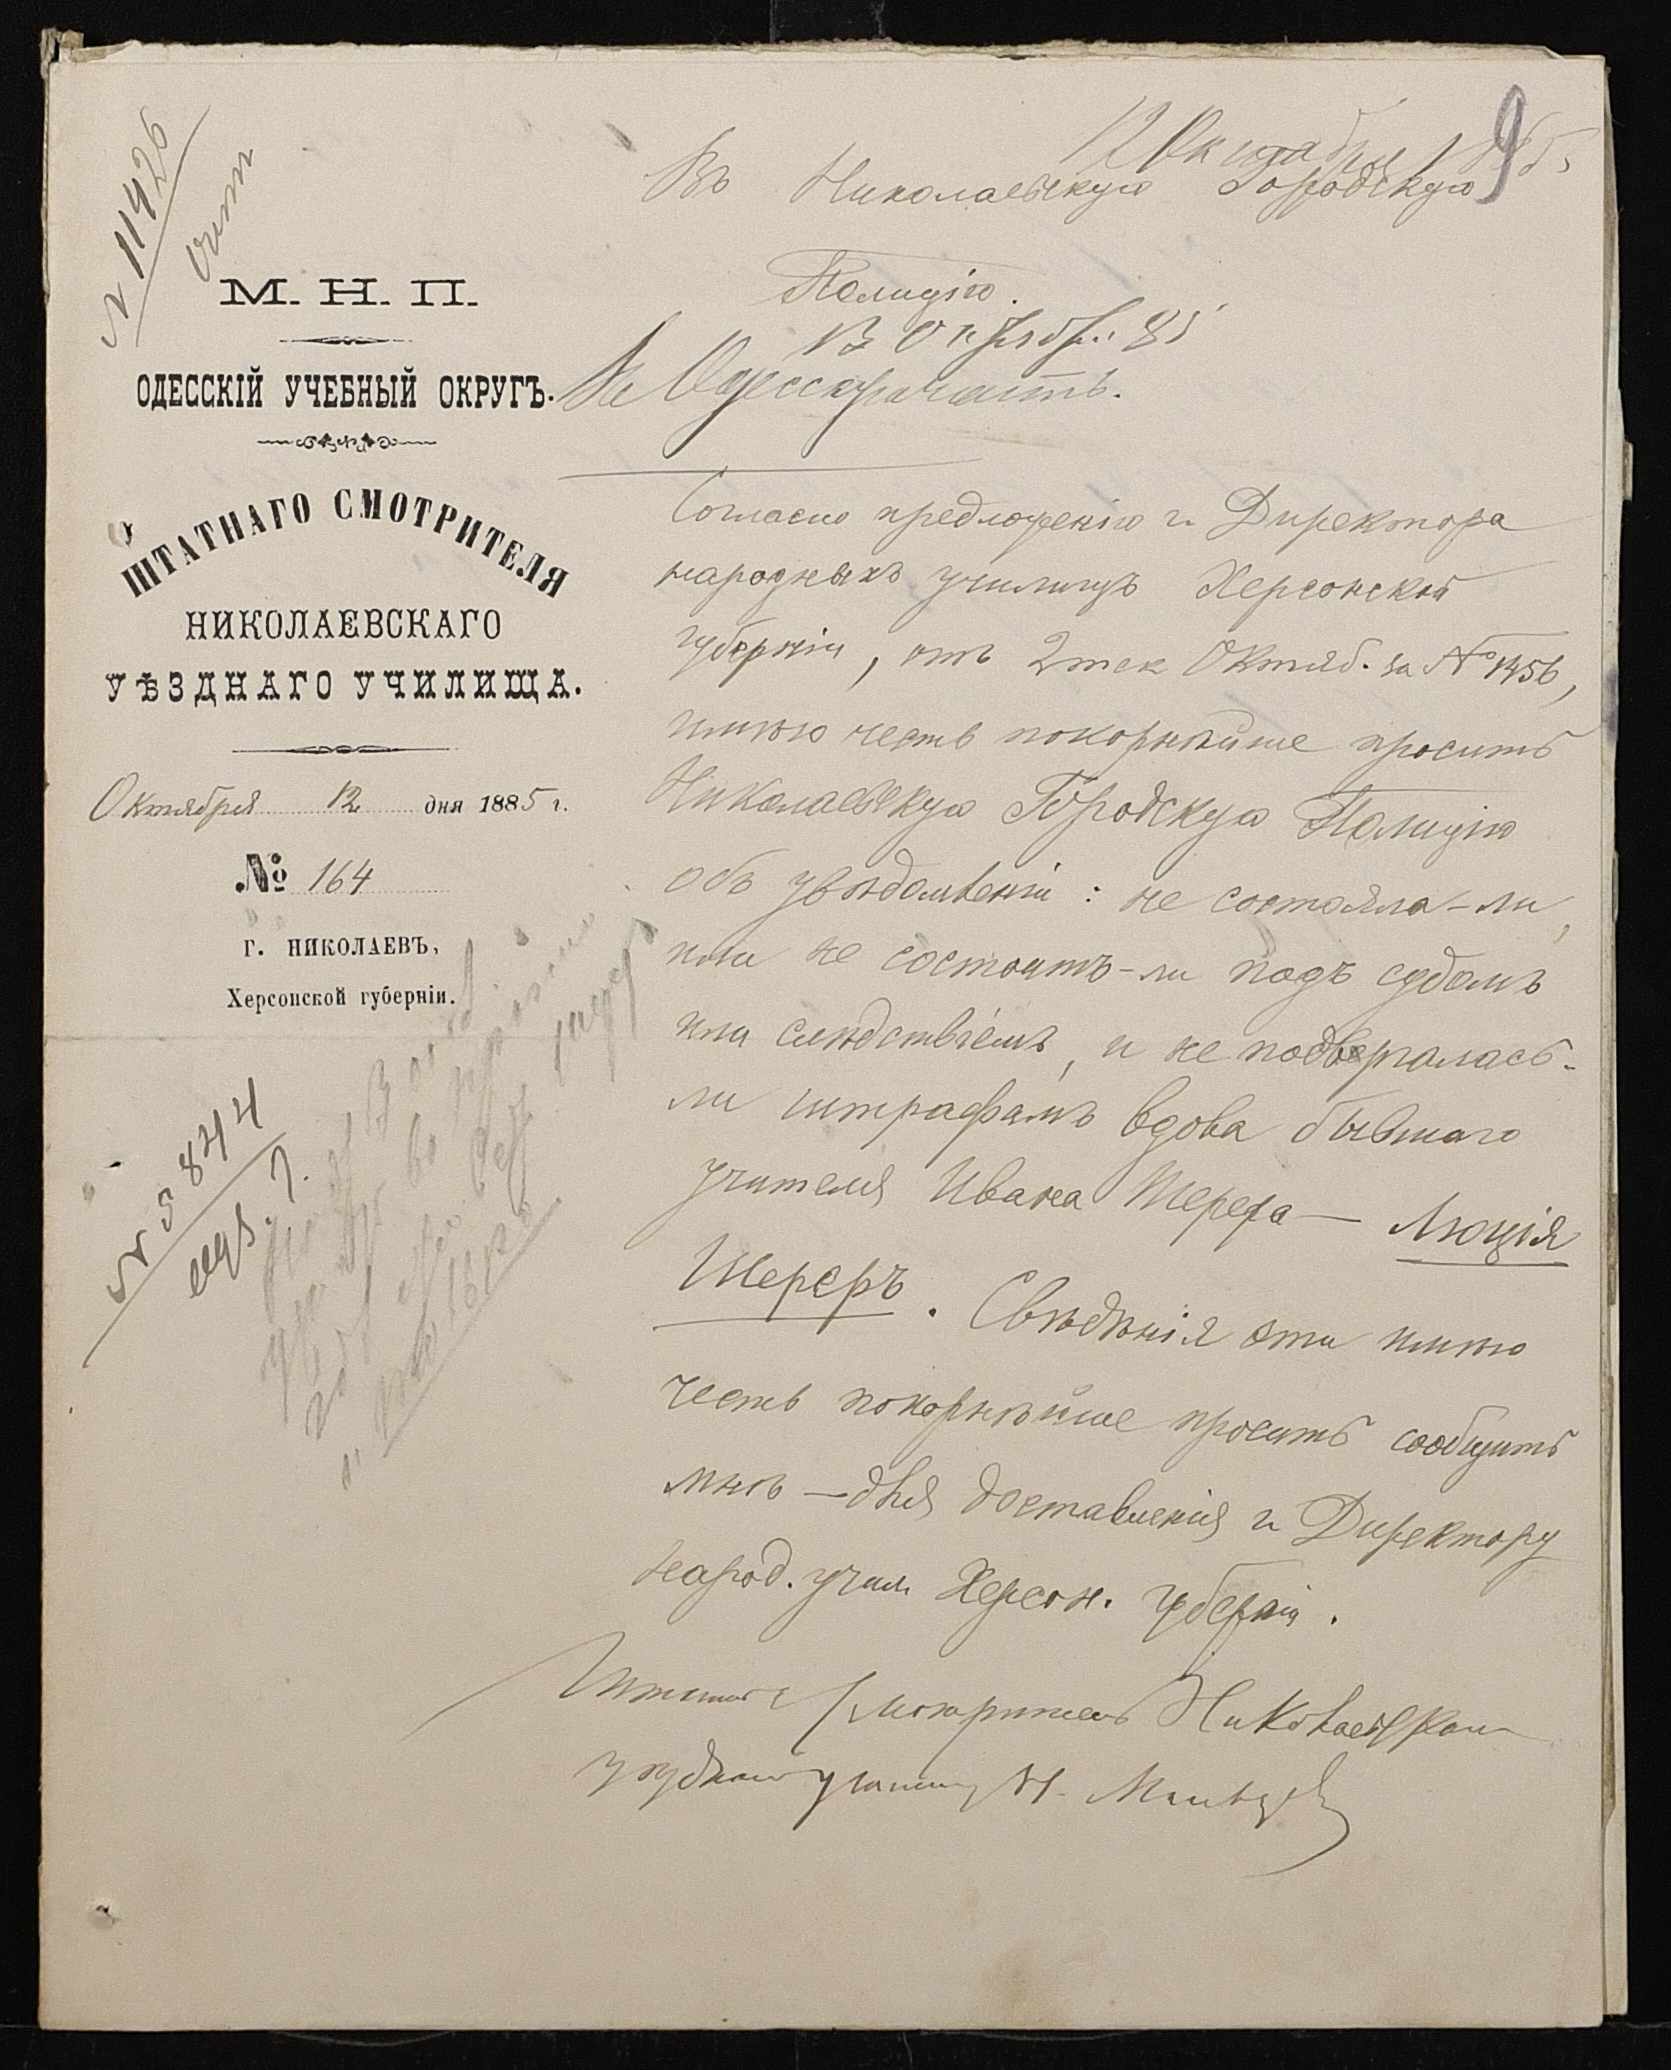 № 11426
М. Н. П.
ОДЕССКІЙ УЧЕБНЫЙ ОКРУГЪ.
ШТАТНАГО СМОТРИТЕЛЯ
НИКОЛАЕВСКАГО
УѢЗДНАГО УЧИЛИЩА.
Октября 12 дня 1885 г.
№ 164
г. НИКОЛАЕВЪ,
Херсонской губерніи.
№ 5844
9
12 Октября 1885
Въ Николаевскую Городскую
Полицію.
Согласно предложенію г. Директора
народныхъ училищъ Херсонской
губерніи, отъ 2 тек Октяб. за № 1456,
имѣю честь покорнѣйше просить
Николаевскую Городскую Полицію
объ увѣдомленіи: не состояла-ли,
или не состоитъ-ли подъ судомъ
или слѣдствіемъ, и не подвергалась-
ли штрафамъ вдова бывшаго
учителя Ивана Шерера — Люція
Шереръ. Свѣдѣнія эти имѣю
честь покорнѣйше просить сообщить
мнѣ — для доставленія г. Директору
народ. учил. Херсон. губерніи.
Штатный Смотритель Николаевскаго
уѣзднаго училища Н.